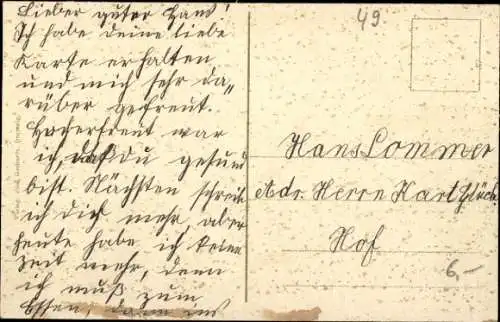 Lieber guter Hans!
Ich habe deine liebe
Karte erhalten
und mich sehr da„
rüber gefreut.
Hocherfreut war
ich, daß du gesund
bist. Nächsten schreib
ich Dir mehr, aber
heute habe ich keine
Zeit mehr, denn
ich muß zum
Essen, dann
49.
Hans Lommer
Adr. Herrn Karl
Hof
6,-